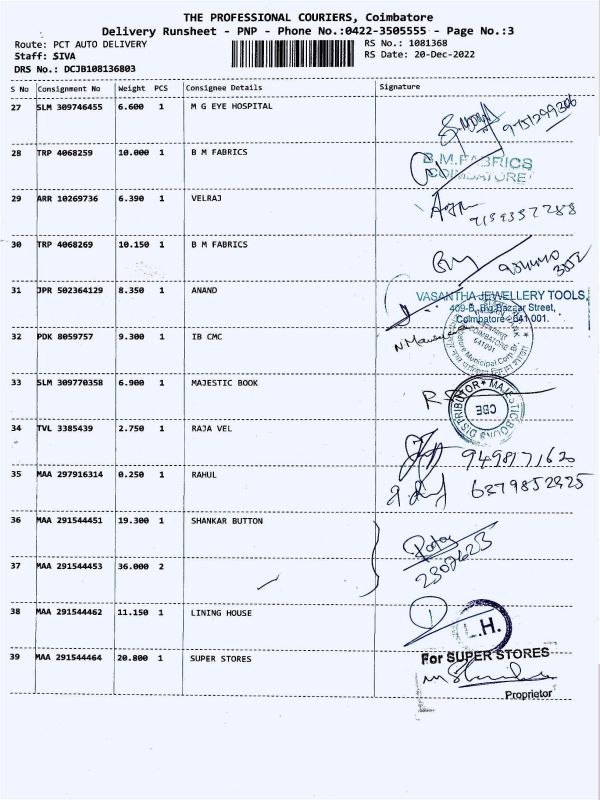 THE PROFESSIONAL COURIERS, Coimbatore
Delivery Runsheet - PNP - Phone No.:0422-3505555 - Page No.:3
Route: PCT AUTO DELIVERY RS No.: 1081368
Staff: SIVA RS Date: 20-Dec-2022
DRS No.: DCJB108136803
S No Consignment No Weight PCS Consignee Details Signature
27 SLM 309746455 6.600 1 M G EYE HOSPITAL
28 TRP 4068259 10.000 1 B M FABRICS
B.M.FABRICS
COIMBATORE
29 ARR 10269736 6.390 1 VELRAJ
30 TRP 4068269 10.150 1 B M FABRICS
31 JPR 502364129 8.350 1 ANAND
VASANTHA JEWELLERY TOOLS,
409-B, Big Bazaar Street,
Coimbatore - 641 001.
32 PDK 8059757 9.300 1 IB CMC
COIMBATORE
641001
33 SLM 309770358 6.900 1 MAJESTIC BOOK
CBE
34 TVL 3385439 2.750 1 RAJA VEL
9498171620
35 MAA 297916314 0.250 1 RAHUL
6379852325
36 MAA 291544451 19.300 1 SHANKAR BUTTON
37 MAA 291544453 36.000 2
2307623
38 MAA 291544462 11.150 1 LINING HOUSE
L.H.
39 MAA 291544464 20.800 1 SUPER STORES
For SUPER STORES
Proprietor